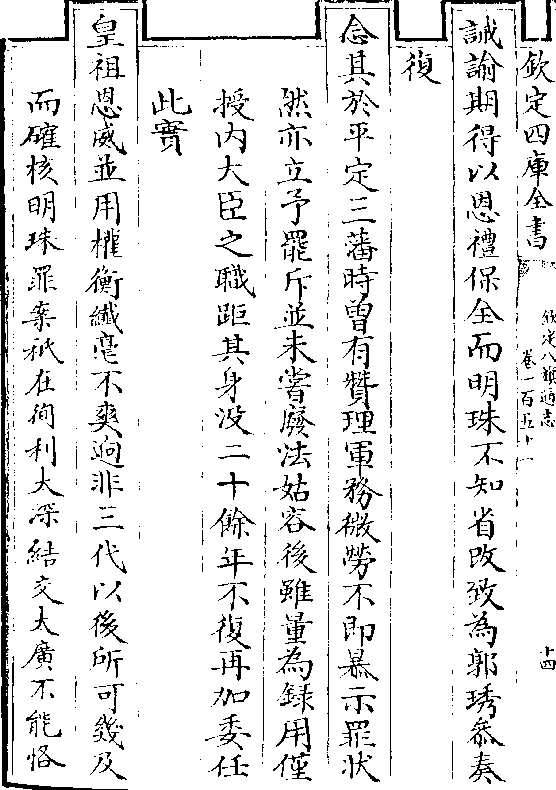 欽定四庫全書
欽定八旗通志
卷一百五十一
十四
誡諭期得以恩禮保全而明珠不知省改致為郭琇叅奏
復
念其於平定三藩時曾有贊理軍務微勞不即暴示罪狀
然亦立予罷斥並未嘗廢法姑容後雖量為録用僅
授内大臣之職距其身没二十餘年不復再加委任
此實
皇祖恩威並用權衡纎毫不爽逈非三代以後所可幾及
而確核明珠罪案秪在徇利太深結交太廣不能恪